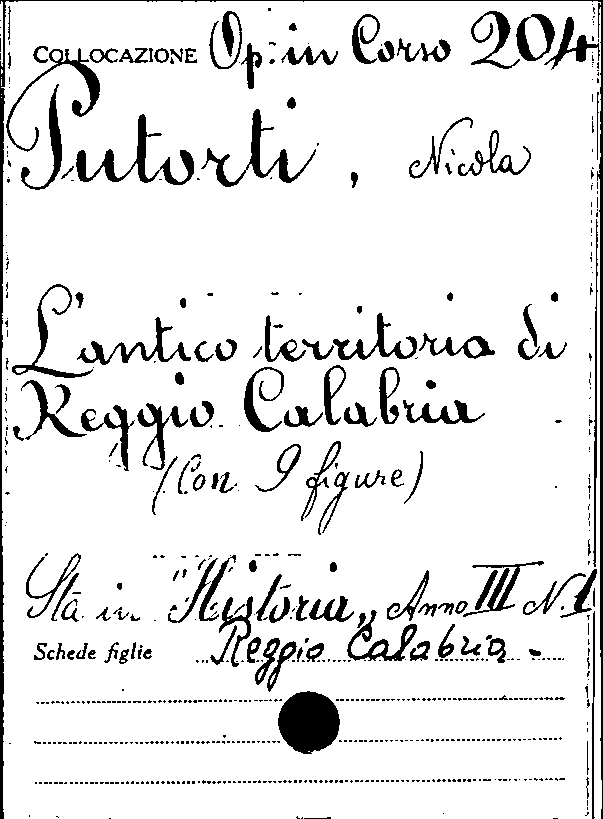 COLLOCAZIONE Op: in Corso 204
Putorti, Nicola
L'antico territoria di
Reggio Calabria
(Con 9 figure)
Sta in "Historia„ Anno III N. 1
Schede figlie Reggio Calabria -